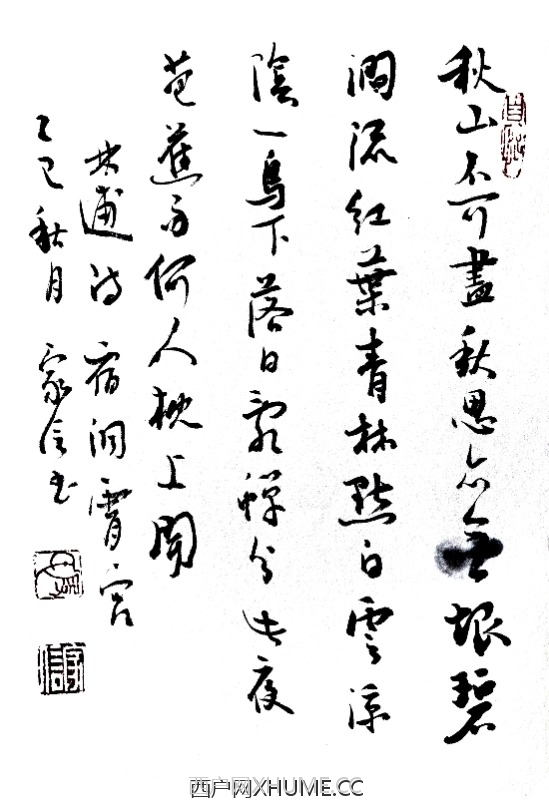 秋山不可盡秋思亦無垠碧
澗流紅葉青林點白雲涼
陰一鳥下落日亂蟬分此夜
芭蕉雨何人枕上聞
林逋詩宿洞霄宮
乙巳秋月家信書
西户网XHUME.CC